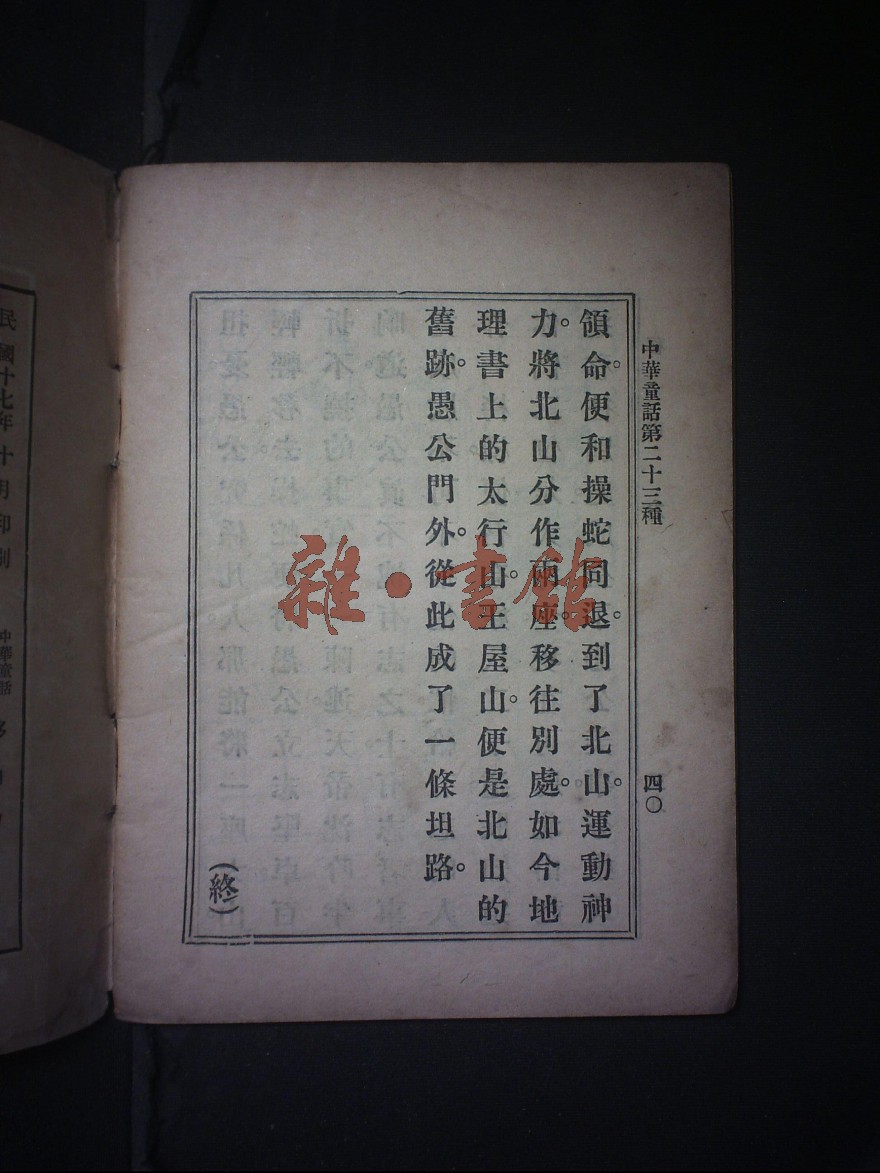 中華童話第二十三種
四〇
領命。便和操蛇同退。到了北山。運動神
力。將北山分作兩座。移往別處。如今地
理書上的太行山。王屋山。便是北山的
舊跡。愚公門外。從此成了一條坦路。
（終）
雜・書館
民國十七年十月印刷
中華童話